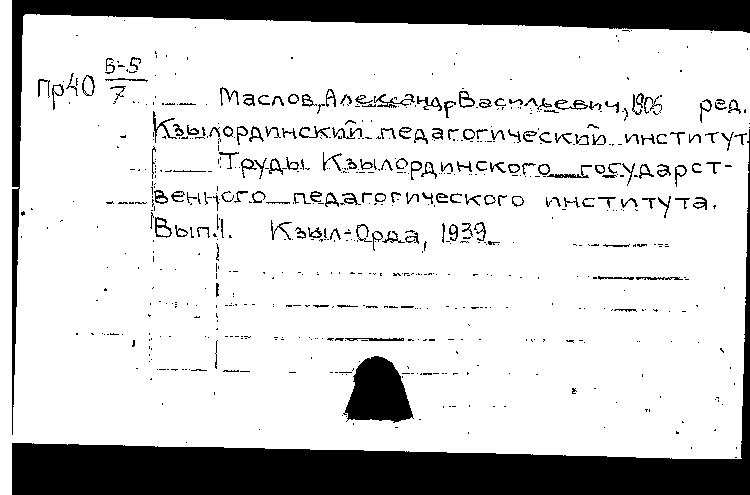 Пр40 В-5/7
Маслов, Александр Васильевич, 1906 ред.
Кзылординский педагогический институт
Труды Кзылординского государст-
венного педагогического института.
Вып.1. Кзыл-Орда, 1939